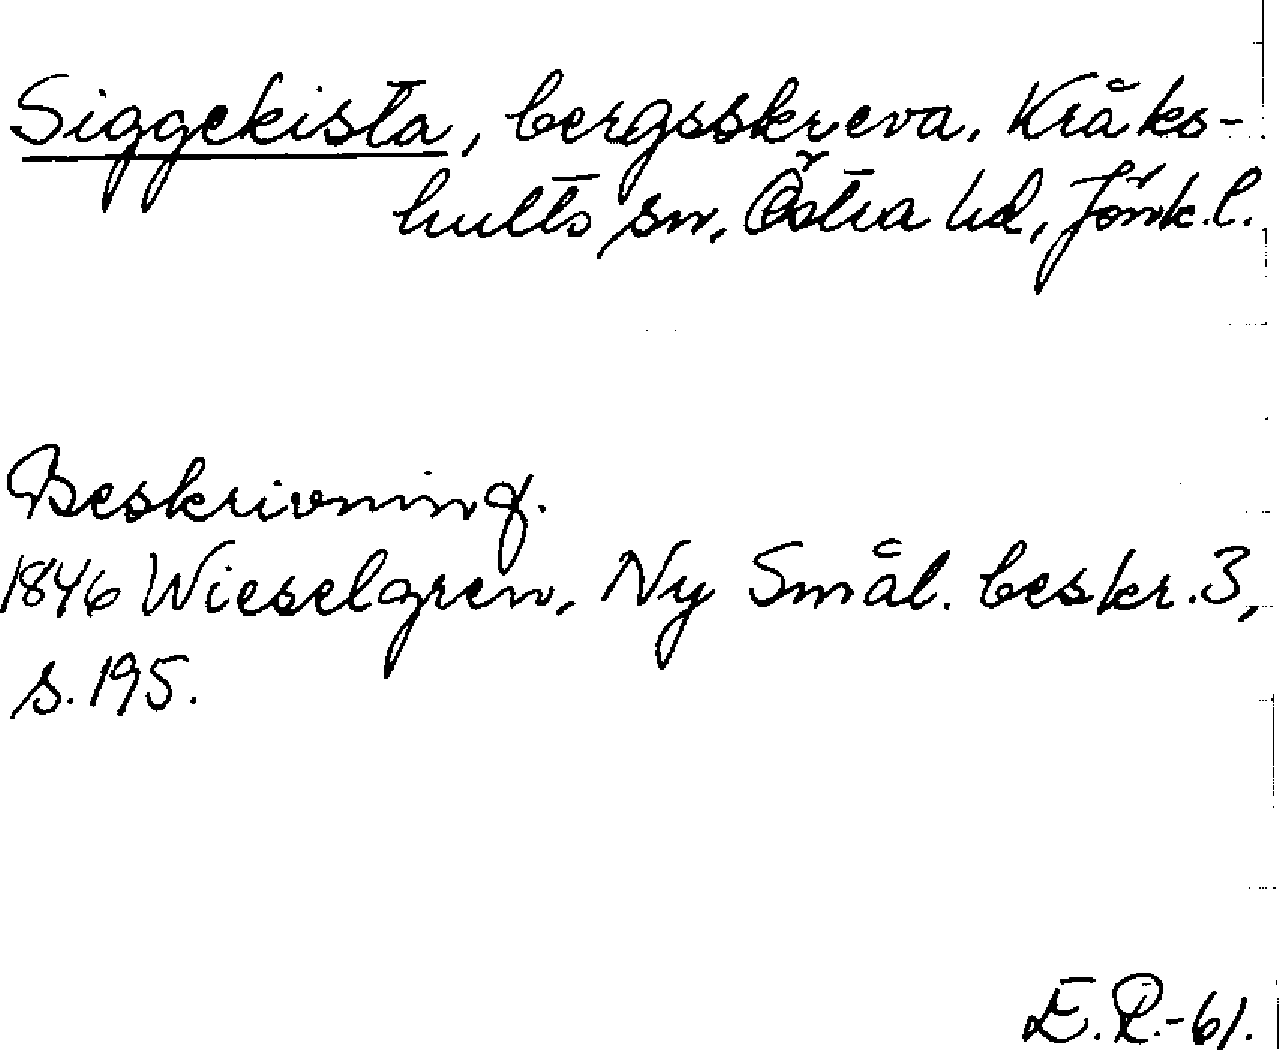 Siggekista, bergsskreva, Kråks-
hults sn, Östra hd, Jönk. l.
Beskrivning.
1846 Wieselgren, Ny Smål. beskr. 3,
s. 195.
E. R.-61.